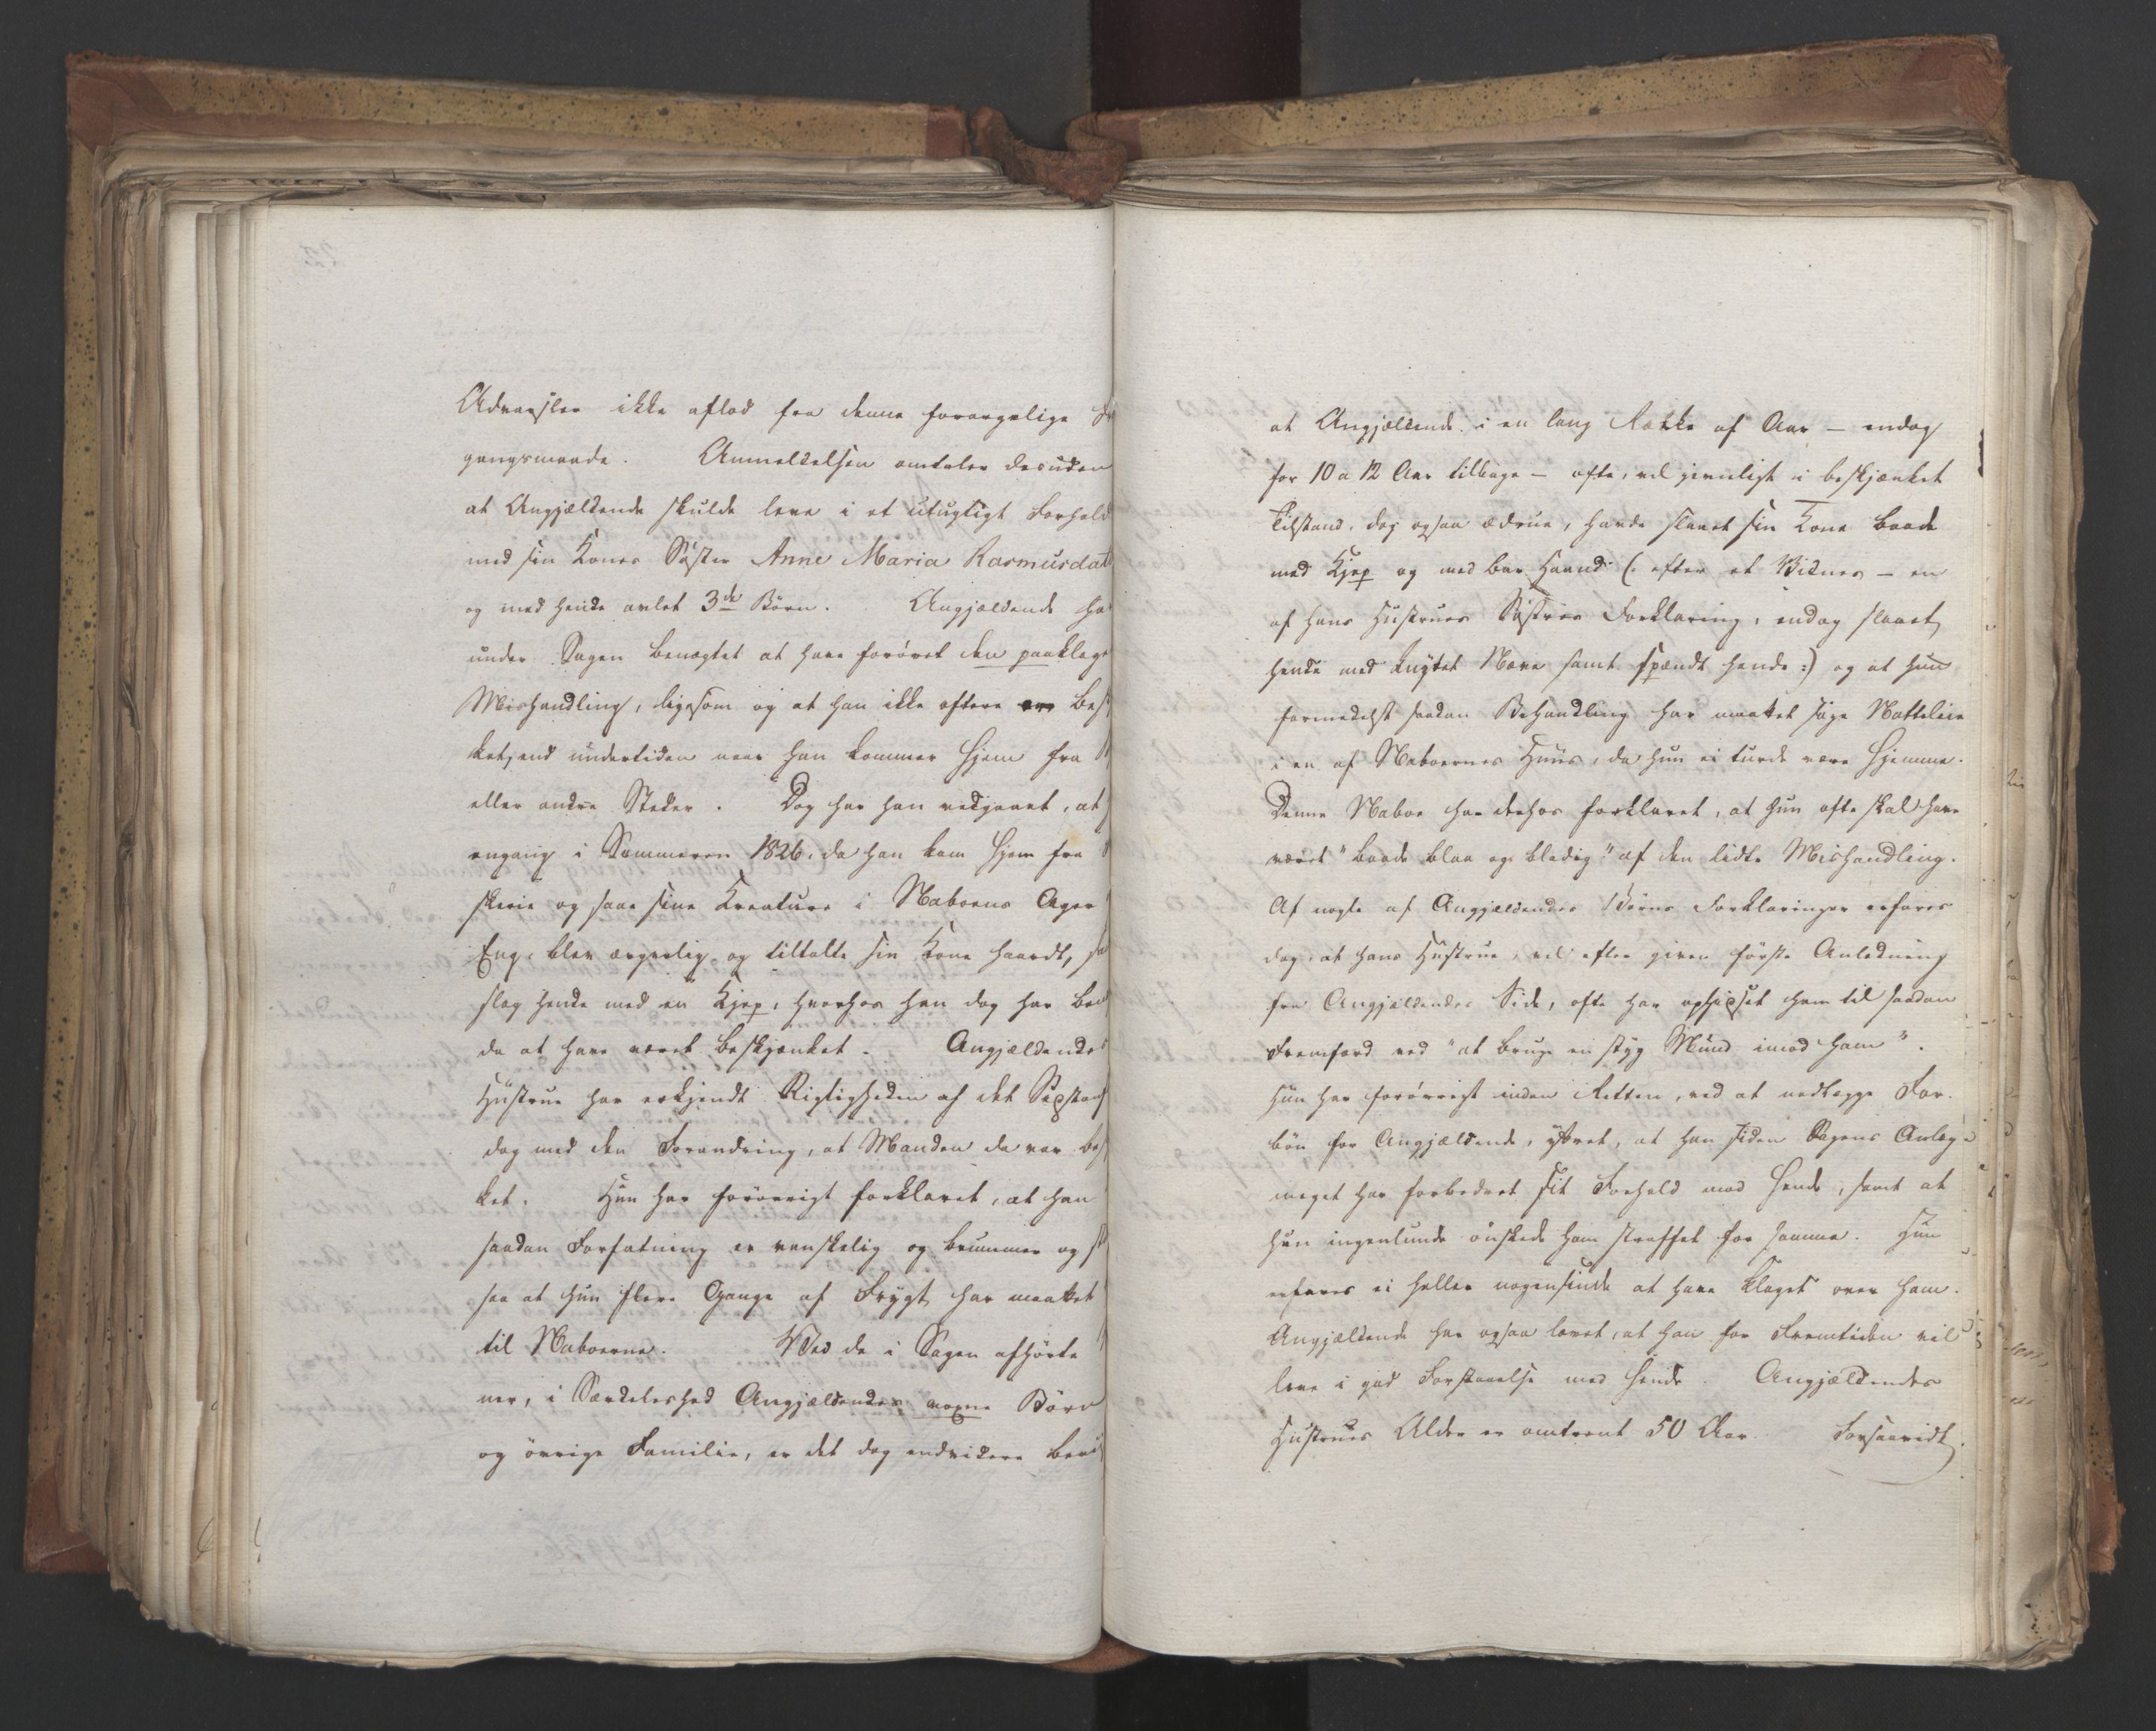 Advarsler ikke aflod fra denne forargelige
gangsmaade. Anmeldelsen omtaler desuden
at Angjældende skulde leve i et utugtigt Forhold
med sin Kones Søster Anne Maria Rasmusdat
og med hende avlet 3de Børn. Angjældende ha
under Sagen benægtet at have forøvet den paaklage
Mishandling, ligesom og at han ikke oftere er bes
ket, end undertiden naar han kommer hjem fra
eller andre Steder. Dog har han vedgaaet, at
engang i Sommeren 1826, da han kom hjem fra
skerie og saae sine Kreature i Naboens Ager
Eng, blev ærgerlig og tiltalte sin Kone haardt,
slog hende med en Kjep, hvorhos han dog har ben
da at have været beskjænket. Angjældendes
Hustrue har erkjendt Rigtigheden af det Sidstanf
dog med den Forandring, at Manden da var bes
ket. Hun har forøvrigt forklaret, at han
saadan Forfatning er vanskelig og brummer og
saa at hun flere Gange af Frygt har maattet
til Naboerne. Ved de i Sagen afhørte
ner, i Særdeleshed Angjældendes voxne Børn
og øvrige Familie, er det dog endvidere bevi
at Angjældende i en lang Række af Aar – endog
for 10 a 12 Aar tilbage – ofte, vel gjerligst i beskjænket
Tilstand, dog ogsaa ædrue, havde slaaet sin Kone baade
med Kjep og med bar Haand (: efter et Vidnes – en
af hans Hustrues Søstres Forklaring, endog slaaet
hende med knyttet Næve samt spændt hende :) og at hun
formedelst saadan Behandling har maattet søge Natteleie
i en af Naboernes Huus, da hun ei turde være hjemme.
Denne Naboe har derhos forklaret, at hun ofte skal have
været "baade blaa og blodig" af den lidte Mishandling.
Af nogle af Angjældendes Børns Forklaringer erfares
dog, at hans Hustrue, vel efter given første Anledning
fra Angjældendes Side, ofte har ophidset ham til saadan
Fremfærd ved "at bruge en styg Mund imod ham".
Hun har forøvrigt inden Retten, ved at nedlægge For-
bøn for Angjældende, yttret, at han siden Sagens Anlæg
meget har forbedret sit Forhold mod hende, samt at
hun ingenlunde ønskede ham straffet for samme. Hun
erfares ei heller nogensinde at have klaget over ham.
Angjældende har ogsaa lovet, at han for Fremtiden vil
leve i god Forstaaelse med hende. Angjældendes
Hustrues Alder er omtrent 50 Aar. Forsaavidt